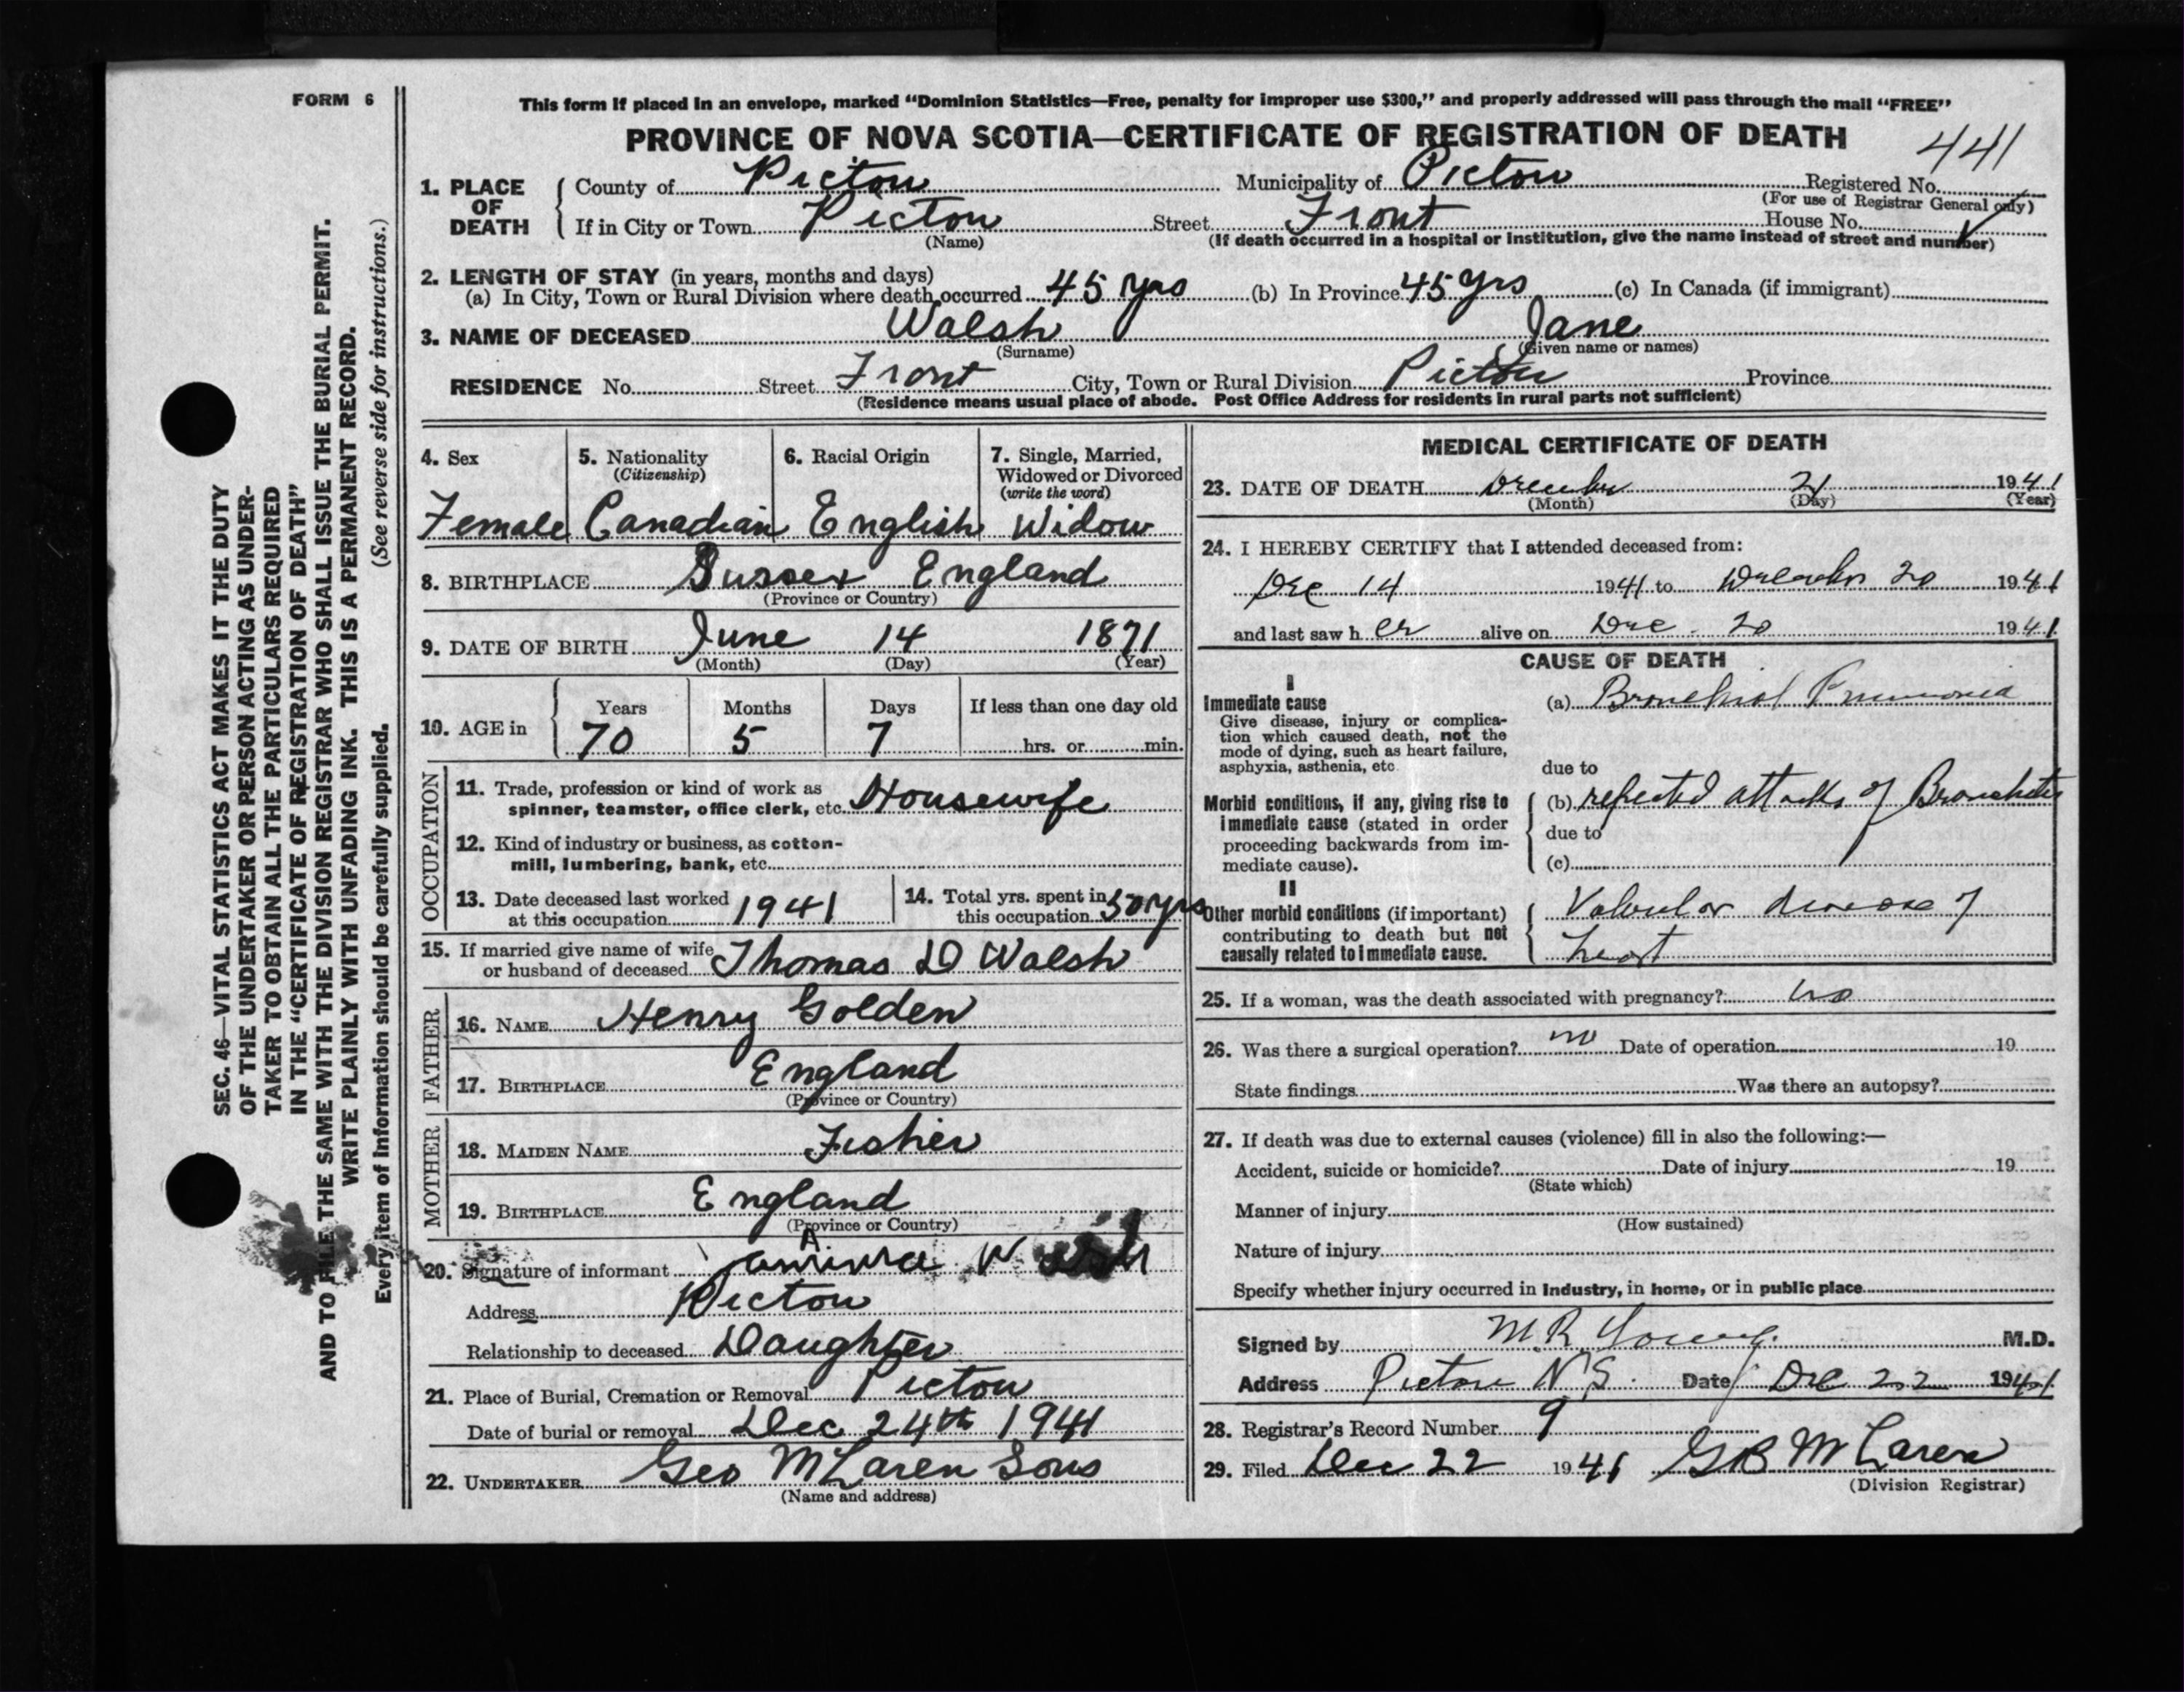 FORM 6
This form if placed in an envelope, marked “Dominion Statistics—Free, penalty for improper use $300,” and properly addressed will pass through the mail “FREE”
PROVINCE OF NOVA SCOTIA—CERTIFICATE OF REGISTRATION OF DEATH
441
1. PLACE OF DEATH { County of Pictou Municipality of Pictou Registered No.
(For use of Registrar General only)
If in City or Town Pictou Street Front House No.
(Name) (If death occurred in a hospital or institution, give the name instead of street and number)
2. LENGTH OF STAY (in years, months and days)
(a) In City, Town or Rural Division where death occurred 45 yrs (b) In Province 45 yrs (c) In Canada (if immigrant)
3. NAME OF DECEASED Walsh Jane
(Surname) (Given name or names)
RESIDENCE No. Street Front City, Town or Rural Division Pictou Province
(Residence means usual place of abode. Post Office Address for residents in rural parts not sufficient)
4. Sex 5. Nationality (Citizenship) 6. Racial Origin 7. Single, Married, Widowed or Divorced (write the word)
Female Canadian English Widow
8. BIRTHPLACE Sussex England
(Province or Country)
9. DATE OF BIRTH June 14 1871
(Month) (Day) (Year)
10. AGE in { Years Months Days If less than one day old
70 5 7 hrs. or min.
OCCUPATION
11. Trade, profession or kind of work as
spinner, teamster, office clerk, etc. Housewife
12. Kind of industry or business, as cotton-
mill, lumbering, bank, etc.
13. Date deceased last worked at this occupation 1941 14. Total yrs. spent in this occupation 50 yrs
15. If married give name of wife
or husband of deceased Thomas D Walsh
FATHER
16. NAME Henry Golden
17. BIRTHPLACE England
(Province or Country)
MOTHER
18. MAIDEN NAME Fisher
19. BIRTHPLACE England
(Province or Country)
20. Signature of informant Walsh
Address Pictou
Relationship to deceased Daughter
21. Place of Burial, Cremation or Removal Pictou
Date of burial or removal Dec 24th 1941
22. UNDERTAKER Geo McLaren Sons
(Name and address)
MEDICAL CERTIFICATE OF DEATH
23. DATE OF DEATH December 21 1941
(Month) (Day) (Year)
24. I HEREBY CERTIFY that I attended deceased from:
Dec 14 1941 to December 20 1941
and last saw her alive on Dec. 20 1941
CAUSE OF DEATH
I
Immediate cause (a) Bronchial Pneumonia
Give disease, injury or complica-
tion which caused death, not the
mode of dying, such as heart failure,
asphyxia, asthenia, etc.
due to
Morbid conditions, if any, giving rise to { (b) repeated attacks of Bronchitis
immediate cause (stated in order due to
proceeding backwards from im-
mediate cause). (c)
II
Other morbid conditions (if important) { Valvular disease of
contributing to death but not
causally related to immediate cause. heart
25. If a woman, was the death associated with pregnancy? no
26. Was there a surgical operation? no Date of operation 19
State findings Was there an autopsy?
27. If death was due to external causes (violence) fill in also the following:—
Accident, suicide or homicide? Date of injury 19
(State which)
Manner of injury
(How sustained)
Nature of injury
Specify whether injury occurred in industry, in home, or in public place
Signed by M R Young M.D.
Address Pictou N.S. Date Dec 22 1941
28. Registrar's Record Number 9
29. Filed Dec 22 1941 G B McLaren
(Division Registrar)
SEC. 46—VITAL STATISTICS ACT MAKES IT THE DUTY
OF THE UNDERTAKER OR PERSON ACTING AS UNDER-
TAKER TO OBTAIN ALL THE PARTICULARS REQUIRED
IN THE “CERTIFICATE OF REGISTRATION OF DEATH”
AND TO FILE THE SAME WITH THE DIVISION REGISTRAR WHO SHALL ISSUE THE BURIAL PERMIT.
WRITE PLAINLY WITH UNFADING INK. THIS IS A PERMANENT RECORD.
Every item of information should be carefully supplied. (See reverse side for instructions.)